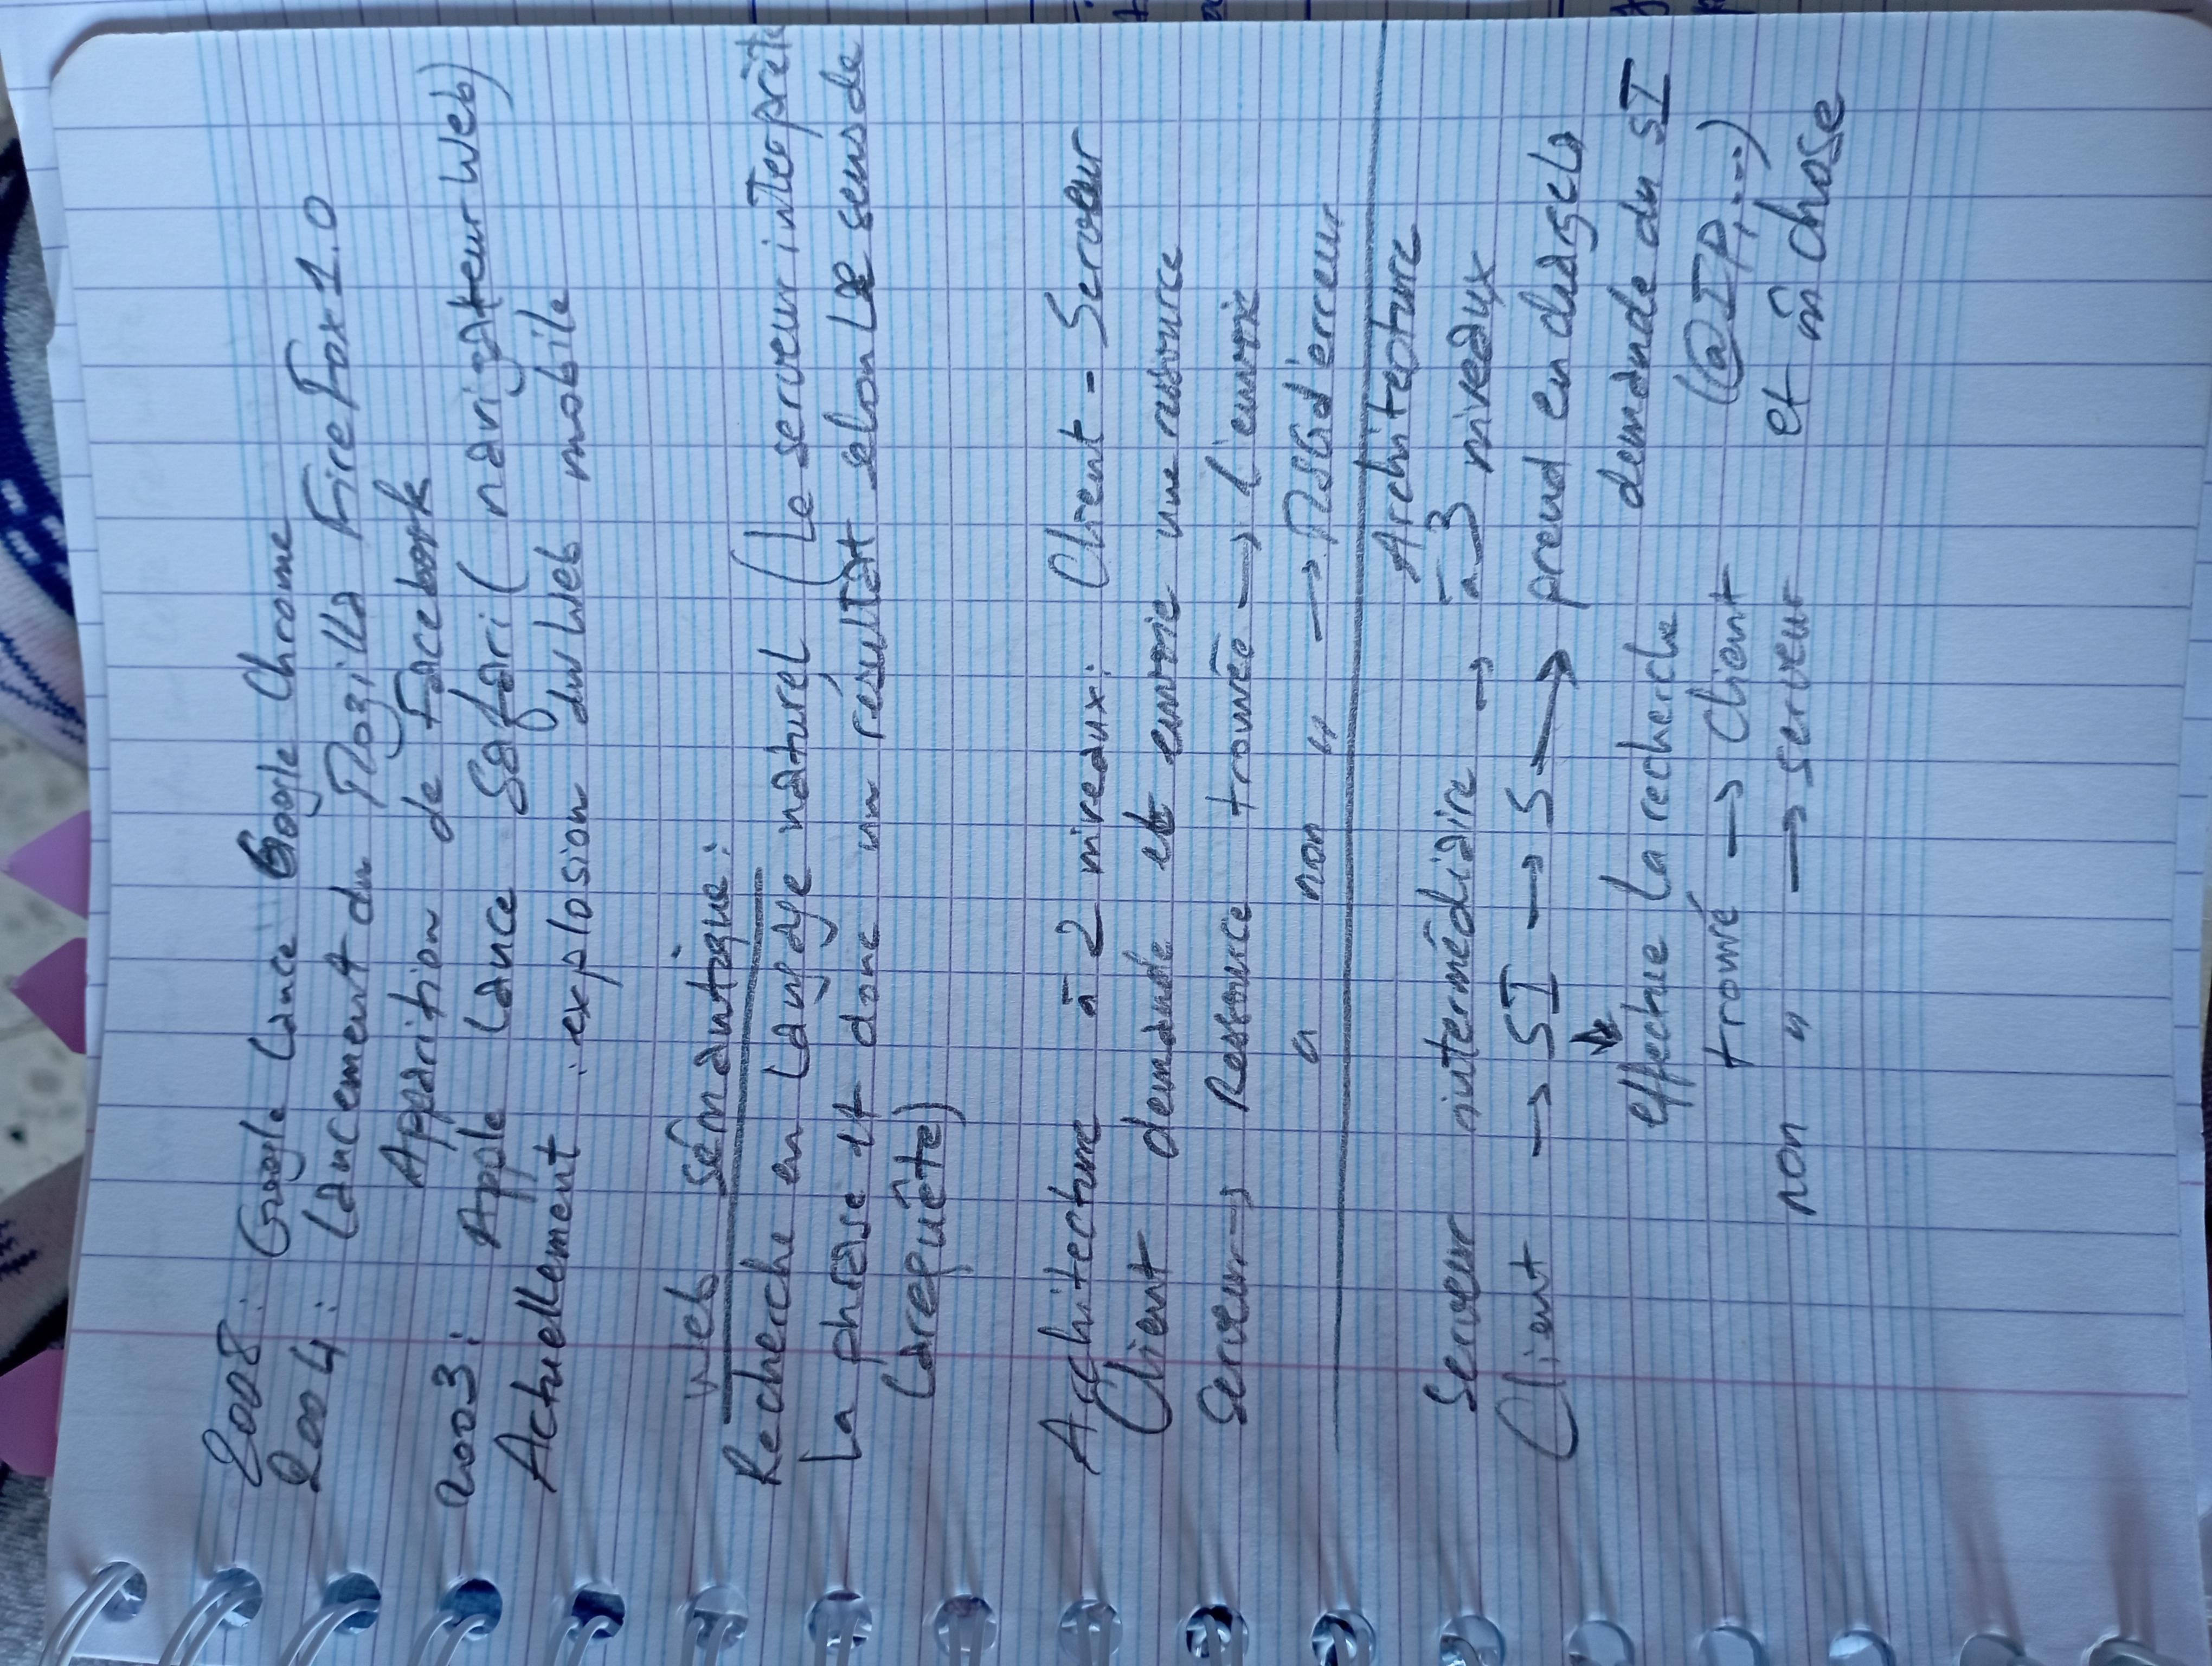 2008: Google Lance Google Chrome
2004: Lancement du Mozilla FireFox 1.0
Apparition de Facebook
2003: Apple Lance Safari (navigateur Web)
Actuellement : explosion du Web mobile
Web Sémantique :
Recherche en Langage naturel (Le serveur interprète
La phrase et donne un résultat selon Le sens de
La requête)
Architecture à 2 niveaux: Client - Serveur
Client demande et envoie une ressource
Serveur → Ressource trouvée → L'envoie
" non " → Msg d'erreur
Architecture
Serveur intermédiaire → à 3 niveaux
Client → SI → S → prend en charge la
demande du SI
effectue La recherche
trouvé → Client (@IP, ...)
non " → serveur et m̂ chose